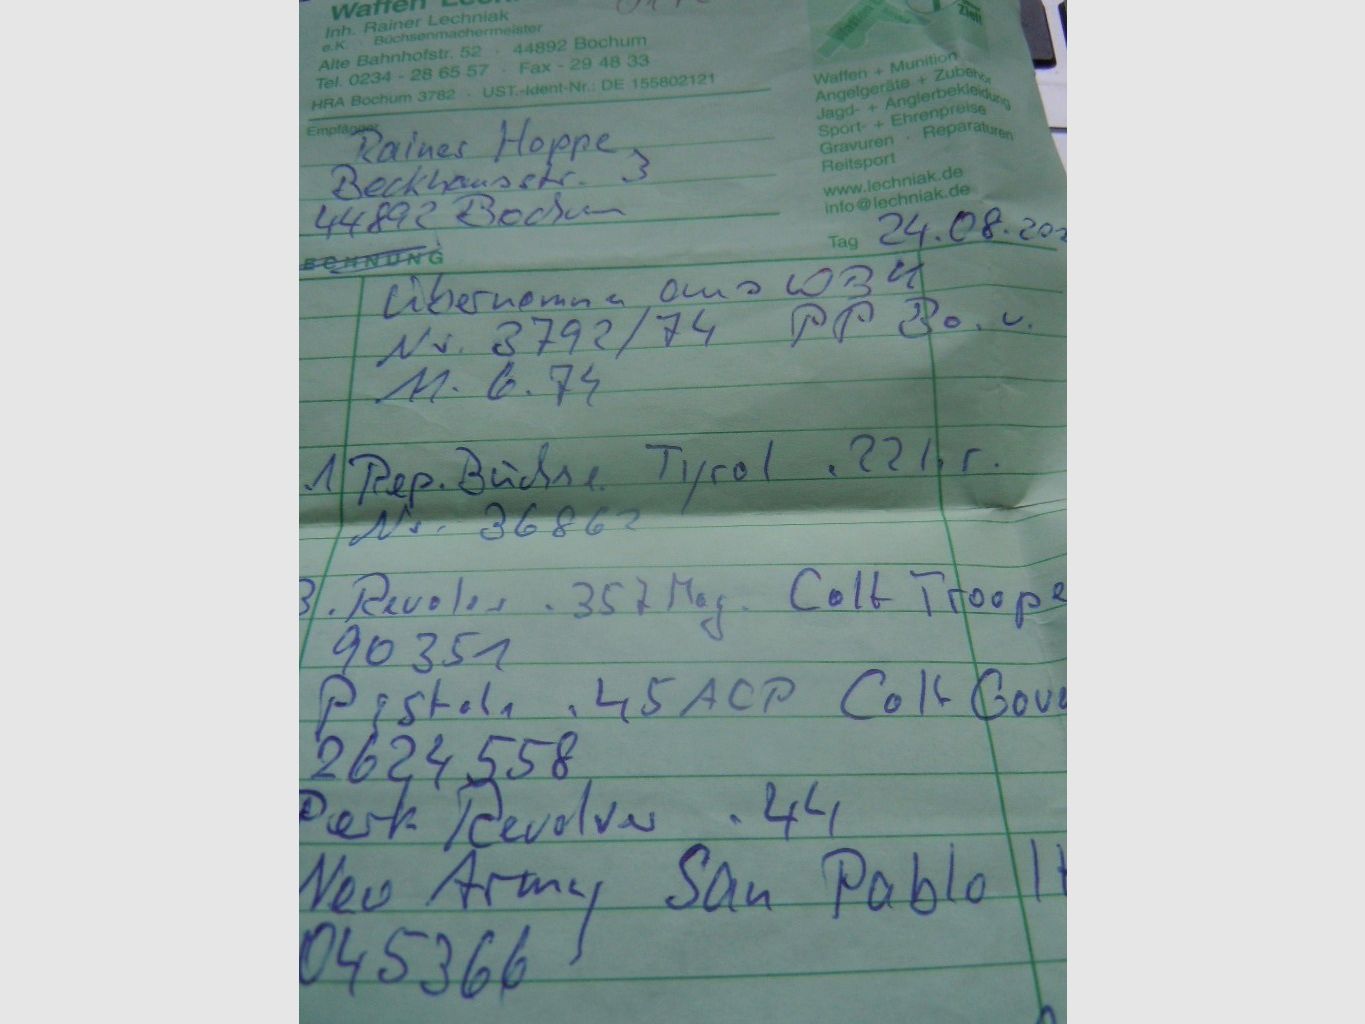 Waffen
Inh. Rainer Lechniak
e.K. · Büchsenmachermeister
Alte Bahnhofstr. 52 · 44892 Bochum
Tel. 0234 - 28 65 57 · Fax - 29 48 33
HRA Bochum 3782 · UST.-Ident-Nr.: DE 155802121
Waffen + Munition
Angelgeräte + Zubehör
Jagd- + Anglerbekleidung
Sport- + Ehrenpreise
Gravuren · Reparaturen
Reitsport
www.lechniak.de
info@lechniak.de
Empfänger
Rainer Hoppe
Beckhausstr. 3
44892 Bochum
Tag 24.08.20
ECHNUNG
aus WBK
Nr. 3792/74 PP Bo. v.
11. 6. 74
1 Rep. Büchse Tyrol .22 l.r.
Nr. 36862
3. Revolver .357 Mag. Colt Troope
90351
Pistole .45 ACP Colt Gove
2624558
Perk Revolver .44
New Army San Pablo It
045366